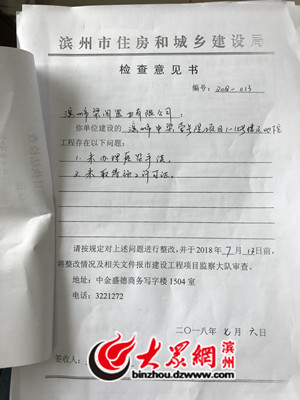 滨州市住房和城乡建设局
检查意见书
编号:2018-013
滨州市梁闰置业有限公司:
你单位建设的滨州市中梁壹号院项目1-12#楼及地下
工程存在以下问题:
1.未办理质监手续。
2.未取得施工许可证。
请按规定对上述问题进行整改,并于2018年7月13日前,
将整改情况及相关文件报市建设工程项目监察大队审查。
地址:中金盛德商务写字楼1504室
电话:3221272
二〇一八年七月六日
签收人:
大众网 滨州
binzhou.dzwww.com